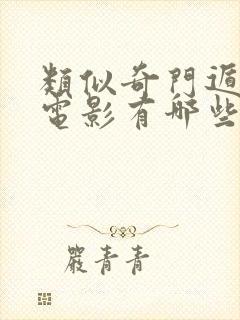 類似奇門遁
電影有哪些
嚴青青